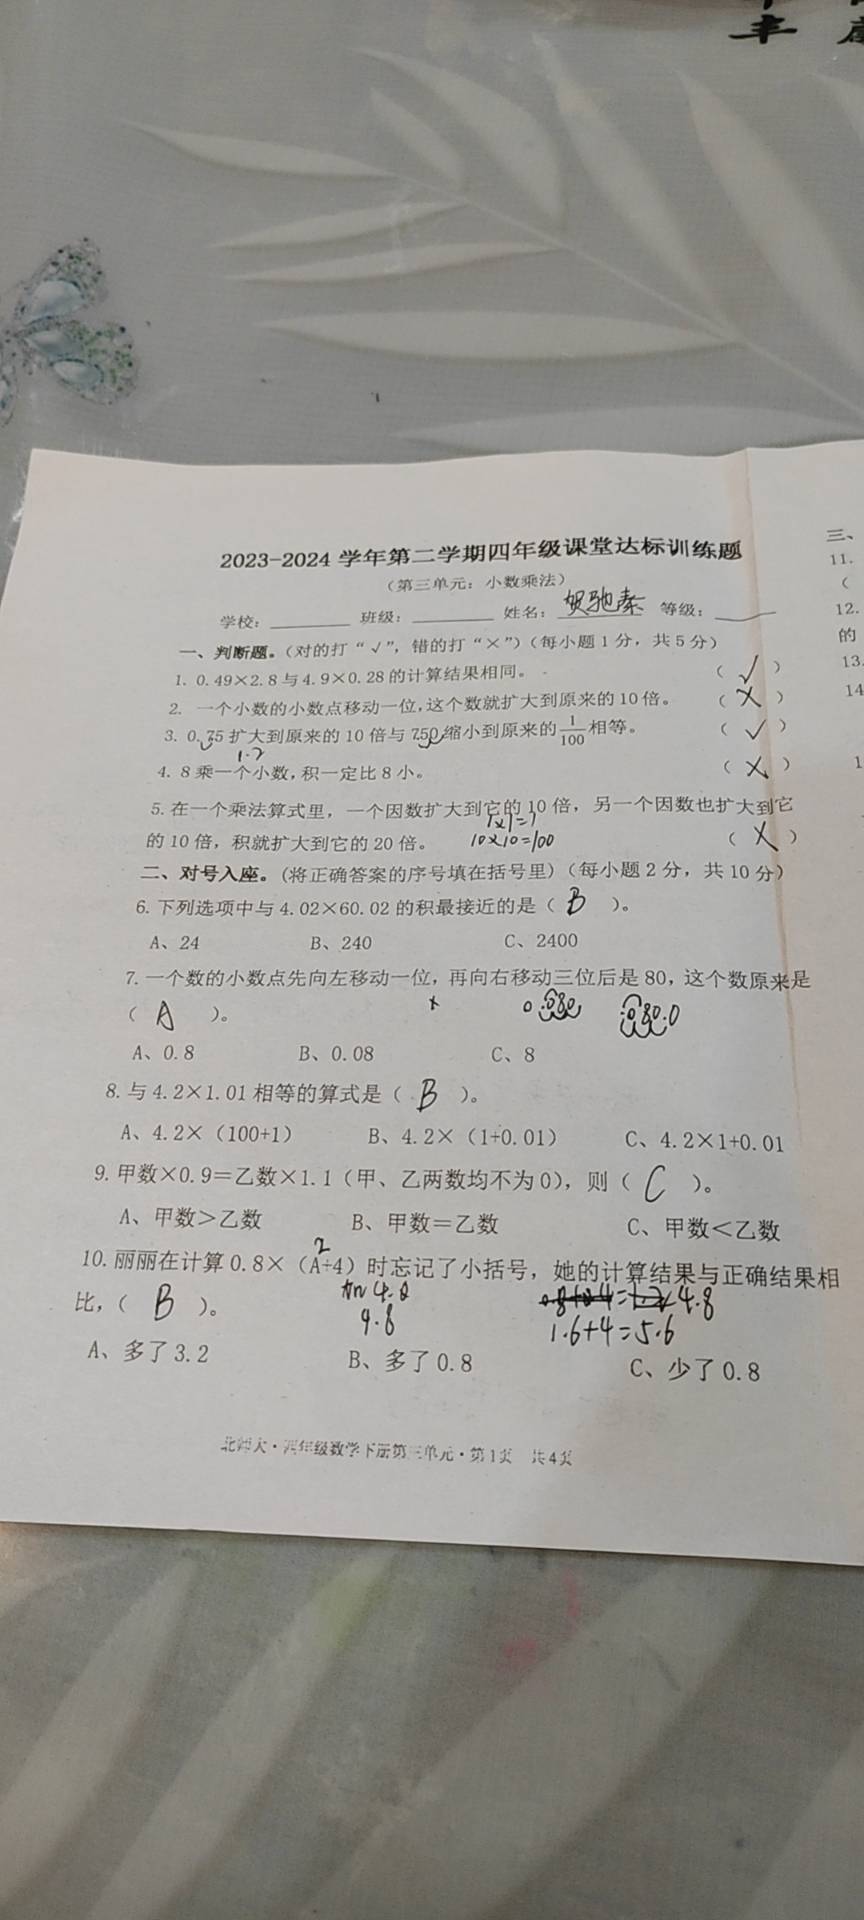 丰
2023-2024 学年第二学期四年级课堂达标训练题
（第三单元：小数乘法）
学校：________ 班级：________ 姓名：贺驰 等级：________
一、判断题。（对的打“√”，错的打“×”）（每小题 1 分，共 5 分）
1. 0.49×2.8 与 4.9×0.28 的计算结果相同。 （ √ ）
2. 一个小数的小数点移动一位，这个数就扩大到原来的 10 倍。 （ × ）
3. 0.75 扩大到原来的 10 倍与 750 缩小到原来的 1/100 相等。 （ √ ）
4. 8 乘一个小数，积一定比 8 小。 （ × ）
5. 在一个乘法算式里，一个因数扩大到它的 10 倍，另一个因数也扩大到它
1×1=1
的 10 倍，积就扩大到它的 20 倍。 10×10=100 （ × ）
二、对号入座。（将正确答案的序号填在括号里）（每小题 2 分，共 10 分）
6. 下列选项中与 4.02×60.02 的积最接近的是（ B ）。
A、24 B、240 C、2400
7. 一个数的小数点先向左移动一位，再向右移动三位后是 80，这个数原来是
（ A ）。
A、0.8 B、0.08 C、8
8. 与 4.2×1.01 相等的算式是（ B ）。
A、4.2×（100+1） B、4.2×（1+0.01） C、4.2×1+0.01
9. 甲数×0.9＝乙数×1.1（甲、乙两数均不为 0），则（ C ）。
A、甲数＞乙数 B、甲数＝乙数 C、甲数＜乙数
2
10. 丽丽在计算 0.8×（A+4）时忘记了小括号，她的计算结果与正确结果相
比，（ B ）。 4.8 4.8
1.6+4=5.6
A、多了 3.2 B、多了 0.8 C、少了 0.8
北师大·四年级数学下册第三单元·第 1 页 共 4 页
三、
11.
（
12.
的
13.
14
1